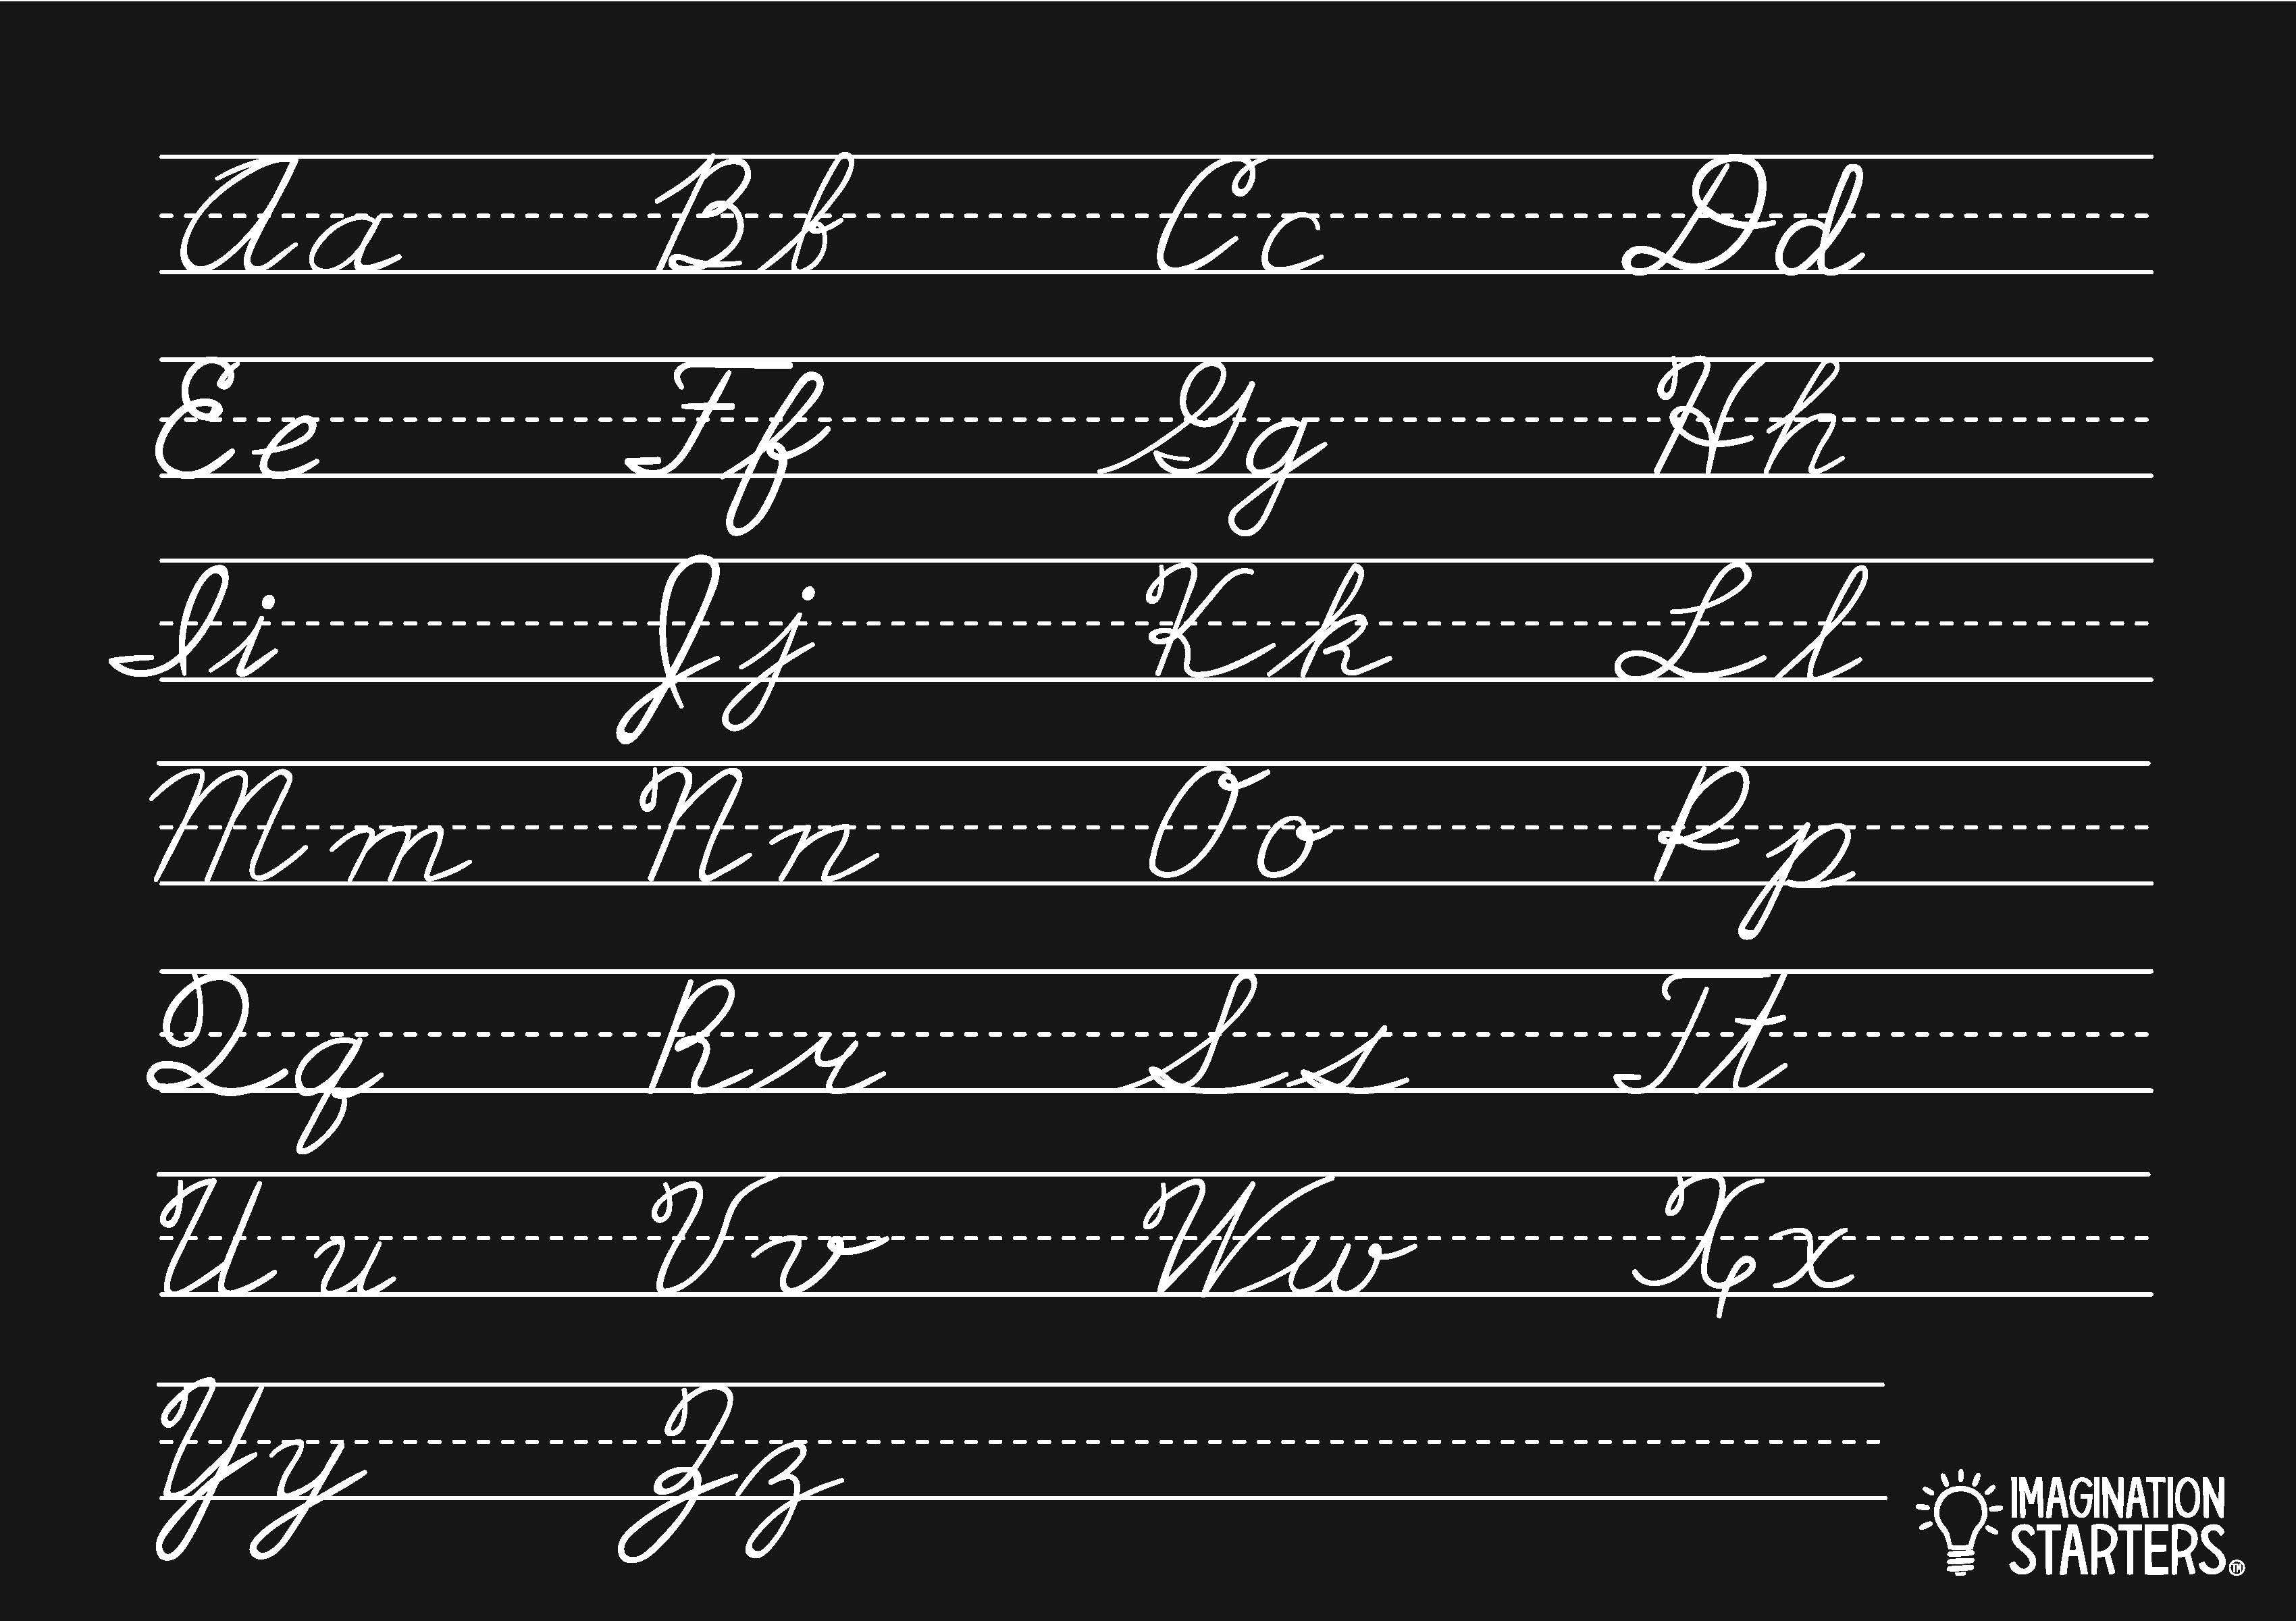 Aa Bb Cc Dd
Ee Ff Gg Hh
Ii Jj Kk Ll
Mm Nn Oo Pp
Qq Rr Ss Tt
Uu Vv Ww Xx
Yy Zz
IMAGINATION
STARTERS™